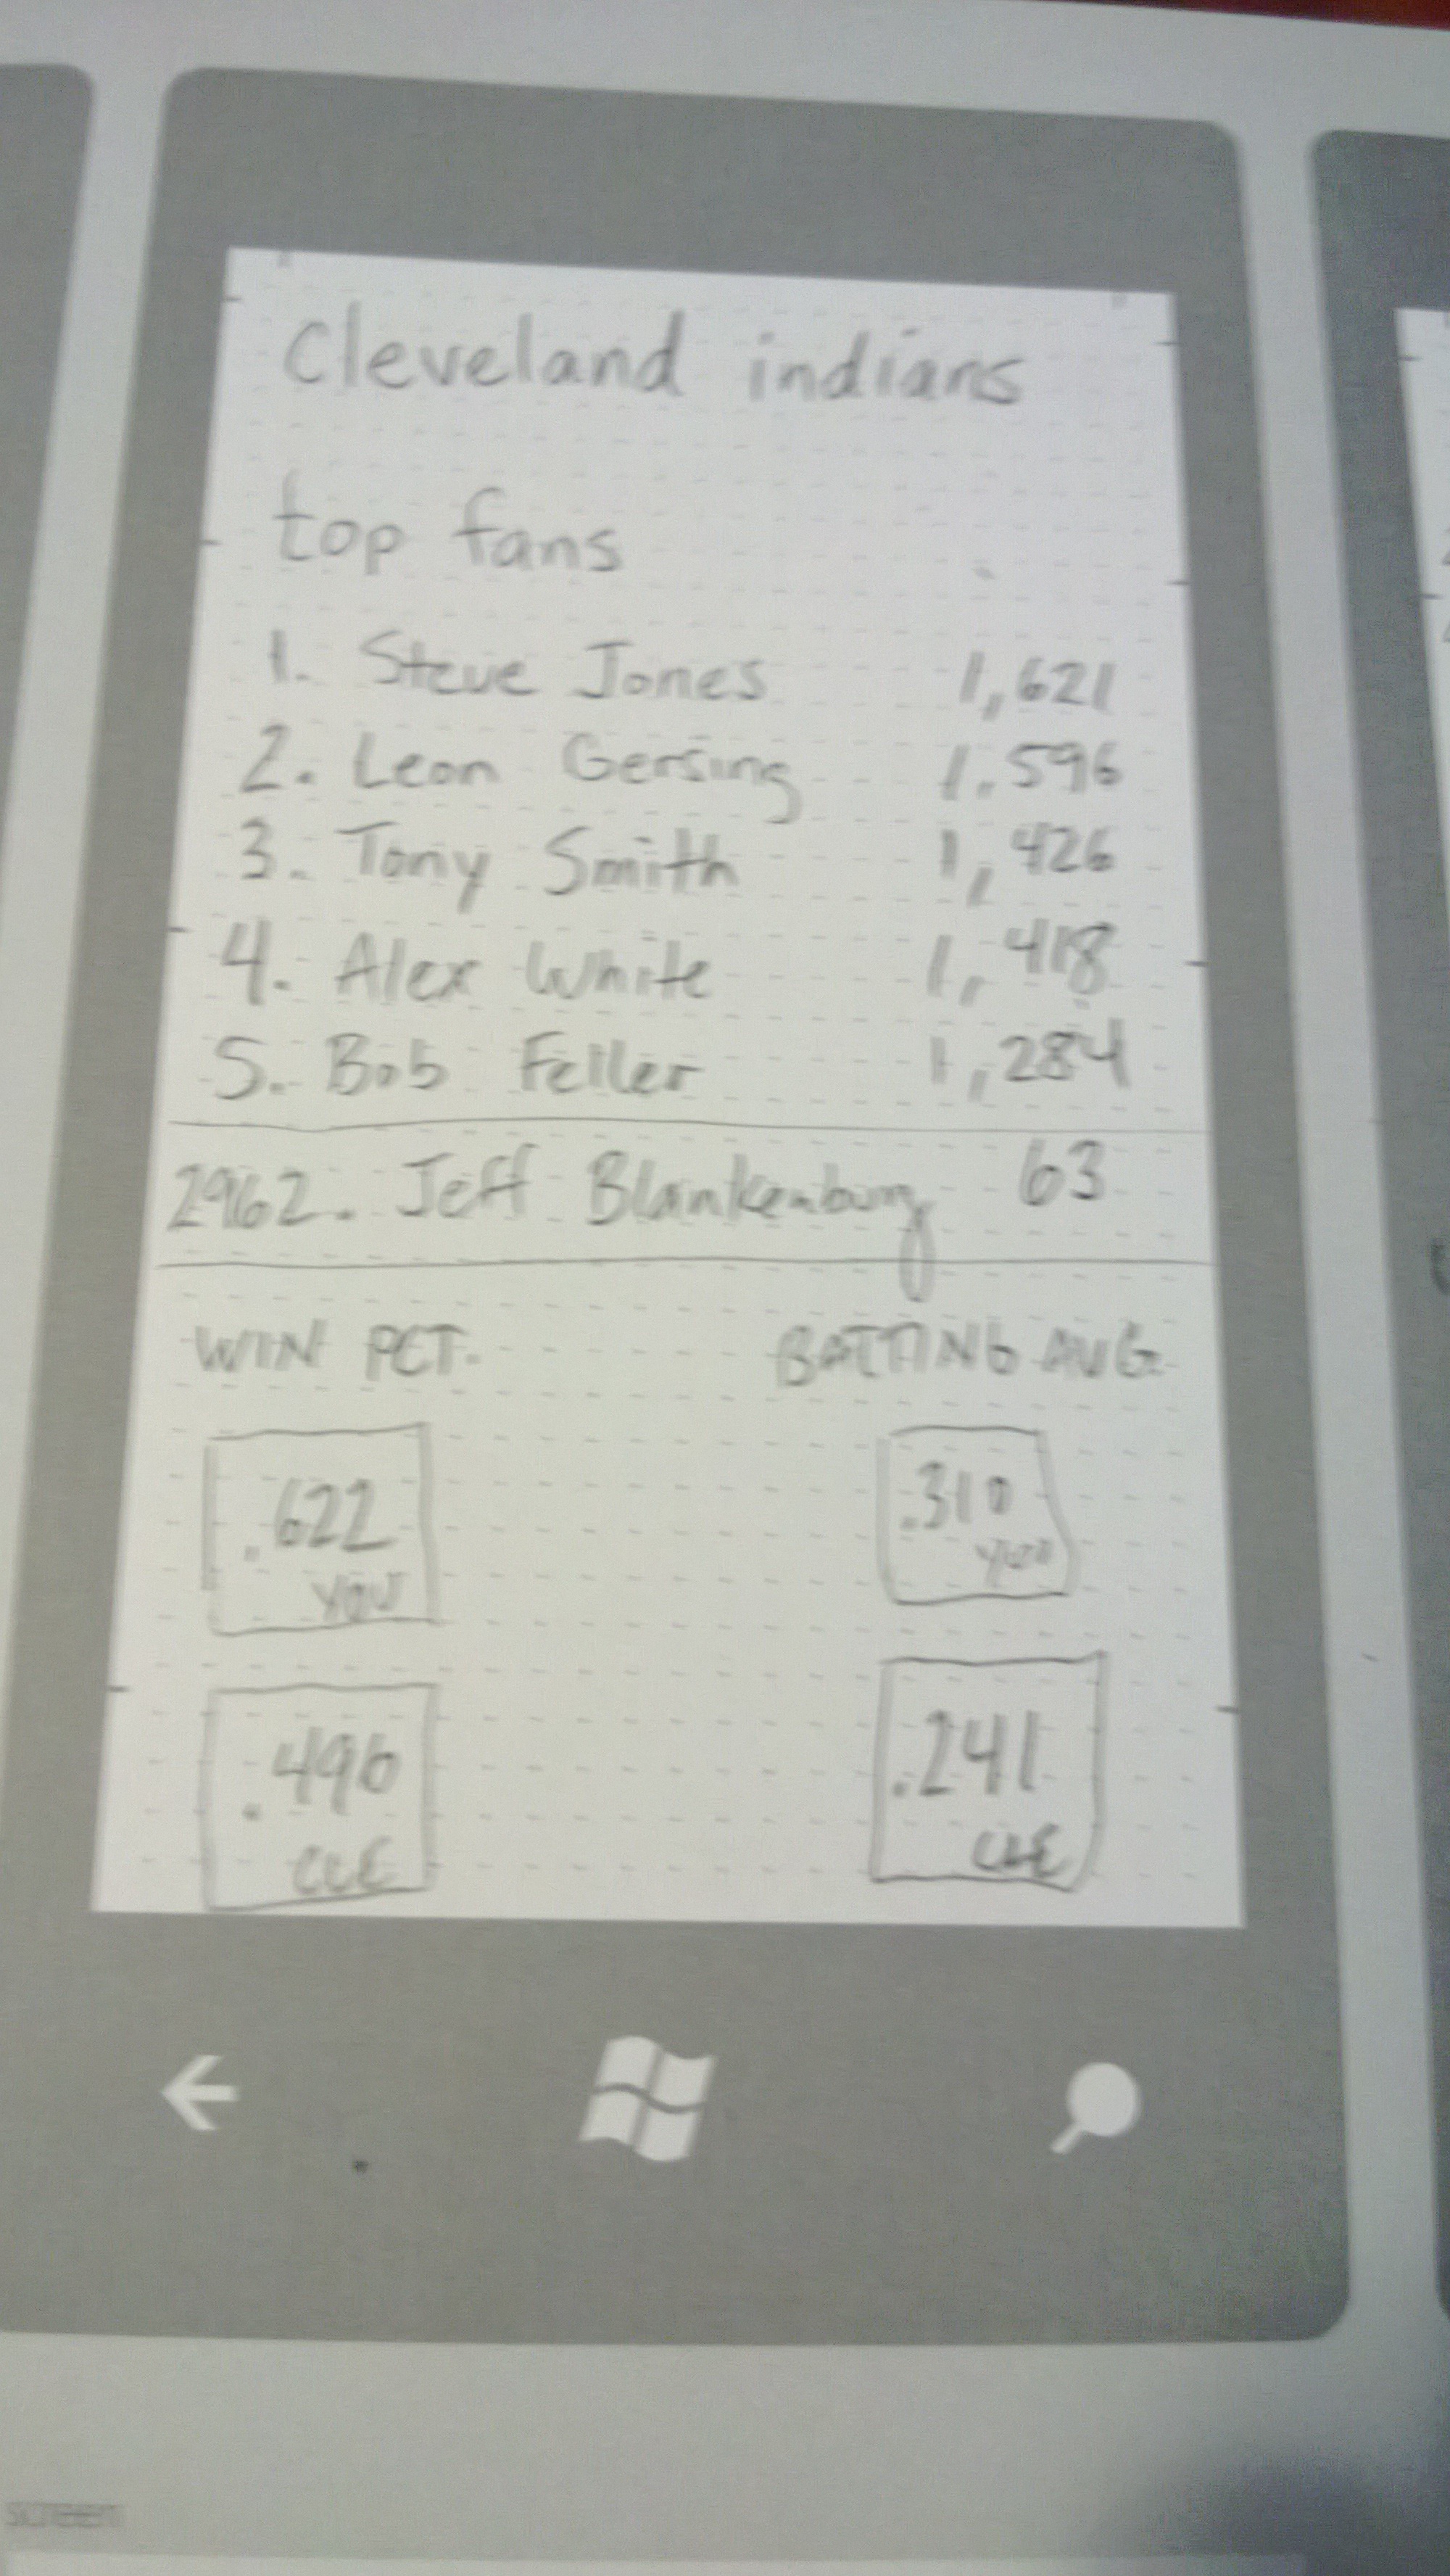 cleveland indians
top fans
1. Steve Jones 1,621
2. Leon Gersing 1,596
3. Tony Smith 1,426
4. Alex White 1,418
5. Bob Feller 1,284
2962. Jeff Blankenburg 63
WIN PCT. BATTING AVG.
.622 .310
YOU YOU
.496 .241
CLE CLE
screen